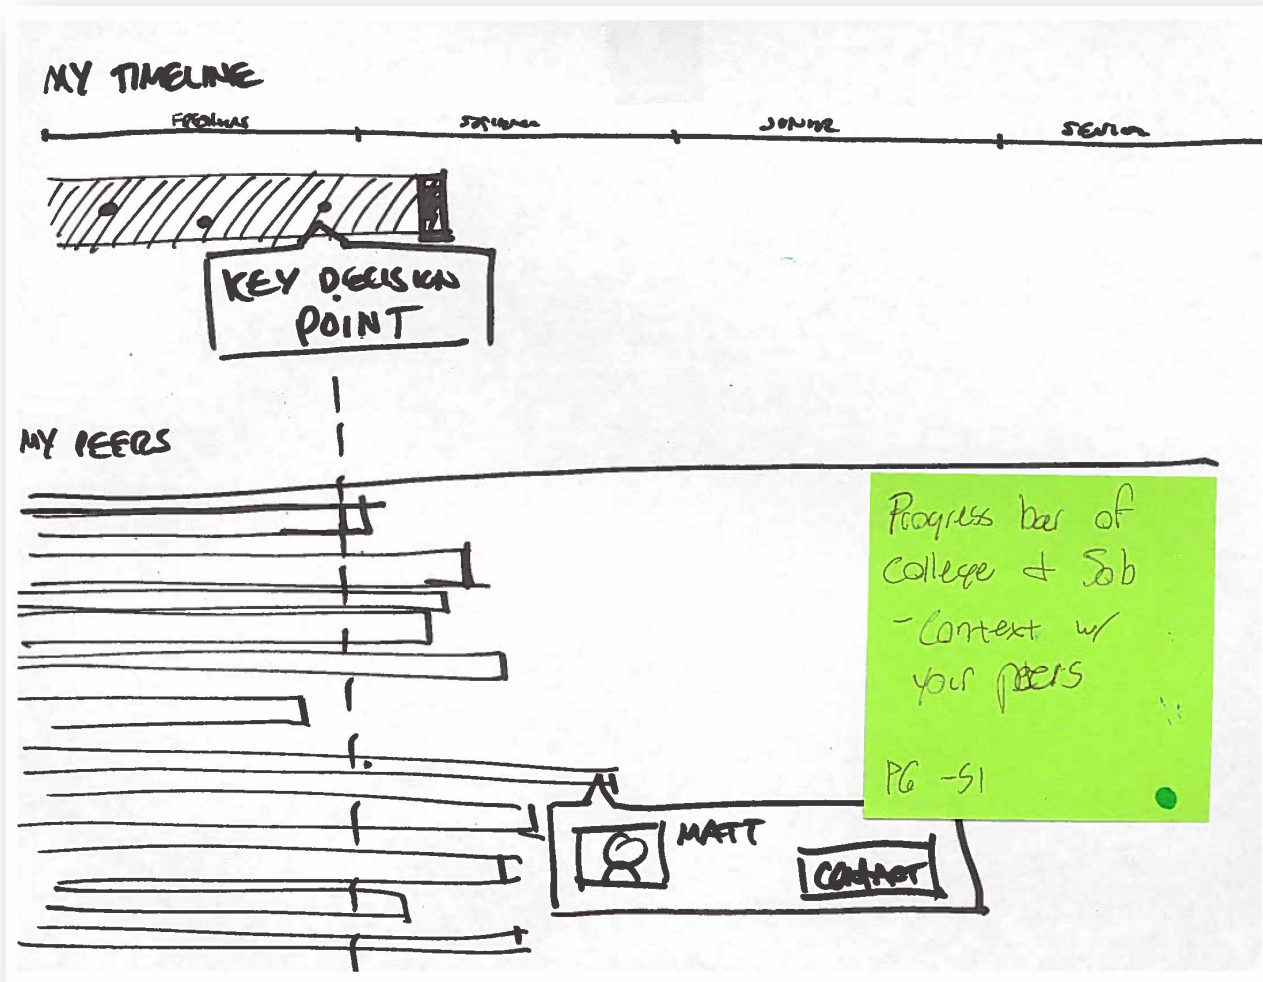 MY TIMELINE
SENIOR
KEY DECISION
POINT
MY PEERS
Progress bar of
college + Job
- Context w/
your peers
PG -S1
MATT
CONTACT